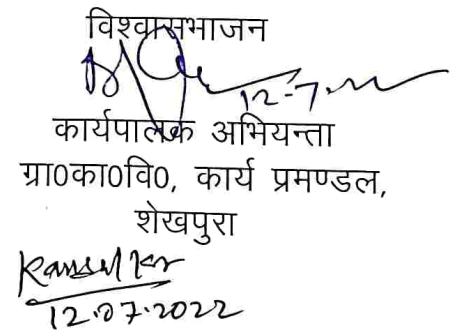 विश्वासभाजन
12-7-22
कार्यपालक अभियन्ता
ग्रा0का0वि0, कार्य प्रमण्डल,
शेखपुरा
12.07.2022